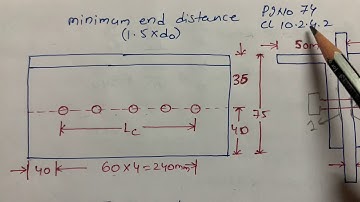 minimum end distance
(1.5×do)
PgNo 74
Cl 10.2.4.2
50m
35
75
40
Lc
40
60×4=240mm